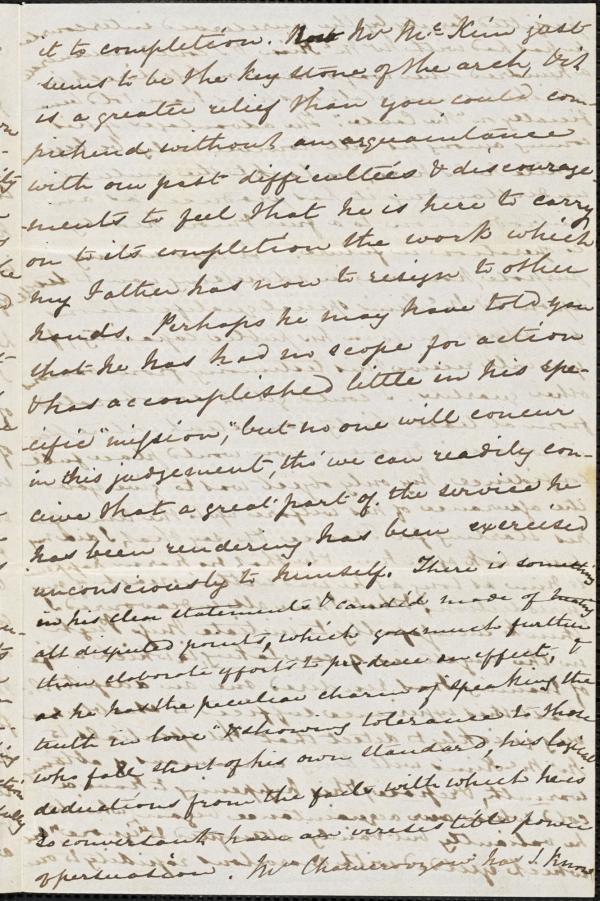 it to completion. Mr McKim just
seems to be the key stone of the arch, & it
is a greater relief than you could com-
prehend without an acquaintance
with our past difficulties & discourage-
ments to feel that he is here to carry
on to its completion the work which
my Father has now to resign to other
hands. Perhaps he may have told you
that he has had no scope for action
& has accomplished little in his spe-
cific "mission," but no one will concur
in this judgement, tho' we can readily con-
ceive that a great part of the service he
has been rendering has been exercised
unconsciously to himself. There is something
in his clear statements & candid mode of
all disputed points, which goes much further
than elaborate efforts to produce an effect, &
as he has the peculiar charm of speaking the
truth in love" & showing tolerance to those
who fall short of his own standard, his logical
deductions from the facts with which he is
so conversant have an irresistible power
of persuasion. Mr Chamerovzow has I know